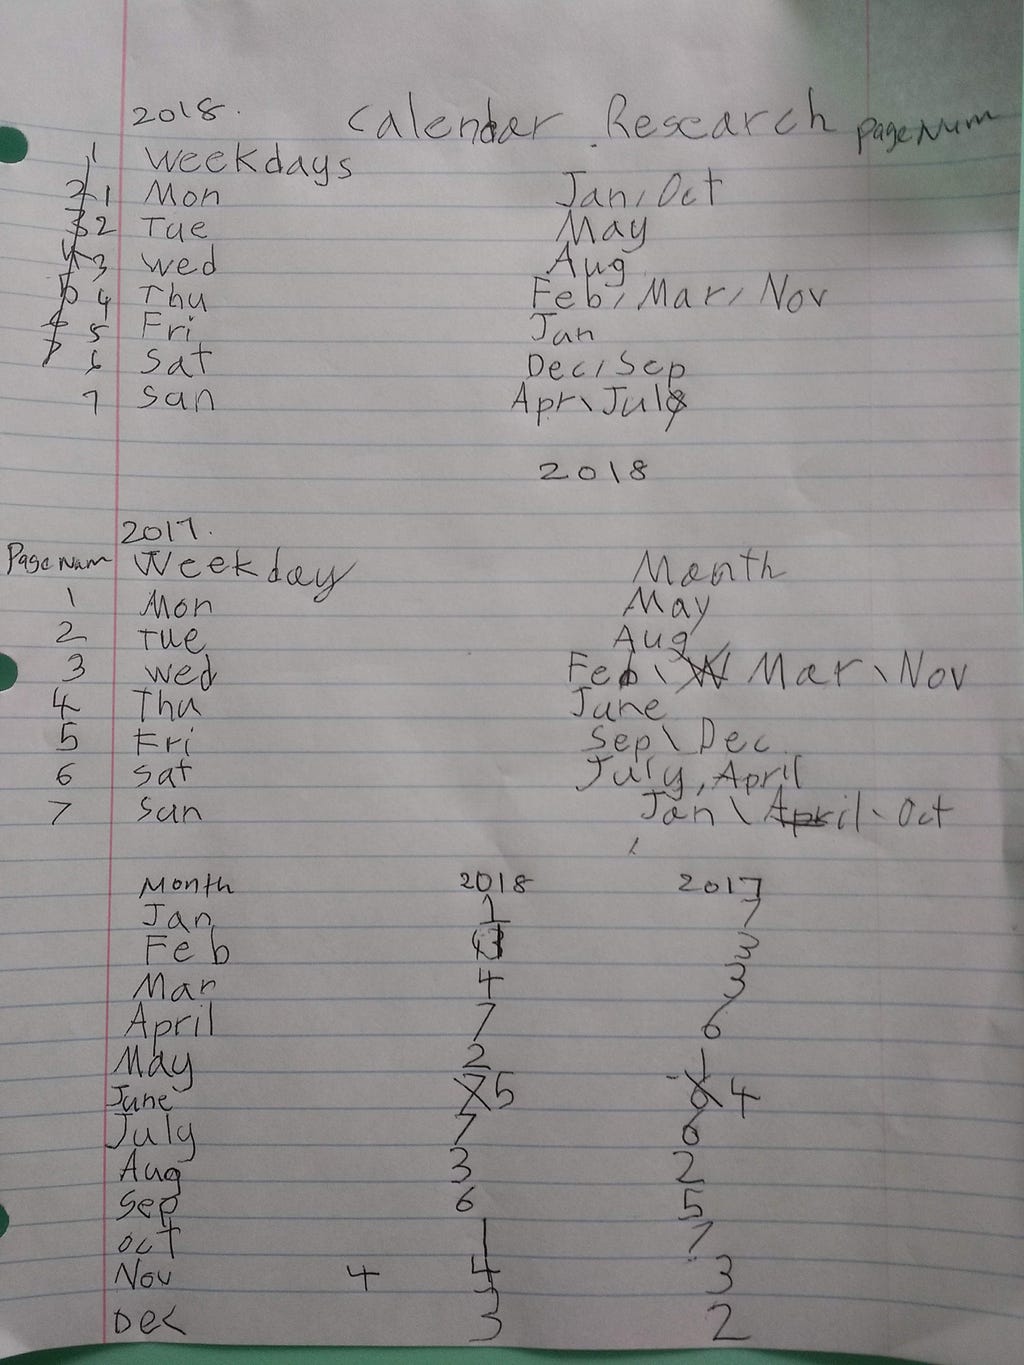 2018. Calendar Research Page Num
1 Weekdays
2 1 Mon Jan, Oct
3 2 Tue May
4 3 Wed Aug
5 4 Thu Feb, Mar, Nov
5 Fri Jan
6 Sat Dec, Sep
7 Sun Apr\Jul
2018
2017.
Page Num Weekday Month
1 Mon May
2 Tue Aug
3 Wed Feb\ W Mar\Nov
4 Thu June
5 Fri Sep\Dec
6 Sat July, April
7 Sun Jan\April. Oct
Month 2018 2017
Jan 1 7
Feb 3
Mar 4 3
April 7 6
May 2 1
June 7 5 6 4
July 7 6
Aug 3 2
Sep 6 5
Oct 1 7
Nov 4 4 3
Dec 3 2